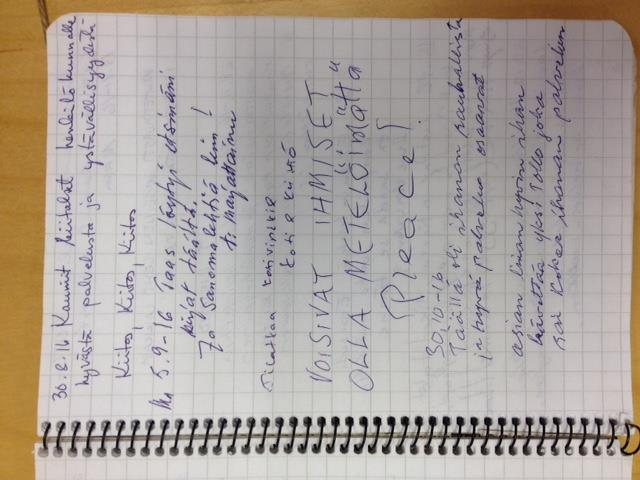 30.8.16 Kauniit kiitokset henkilökunnalle
hyvästä palvelusta ja ystävällisyydestä
Kiitos, Kiitos, Kiitos
Ma 5.9-16 Taas löytyi etsimäni
kirjat täältä.
Ja Sanomalehtiä luin!
t:
Tilatkaa
kotiin kiitos
VOISIVAT IHMISET
OLLA METELÖIMÄTTÄ"
Pleace!
30,10-16
Täällä oli ihanan rauhallista
ja hyvä palvelu osaavat
asian liian hyvin ihan
hävettää yksi tollo joka
sai kokea ihanan palvelun